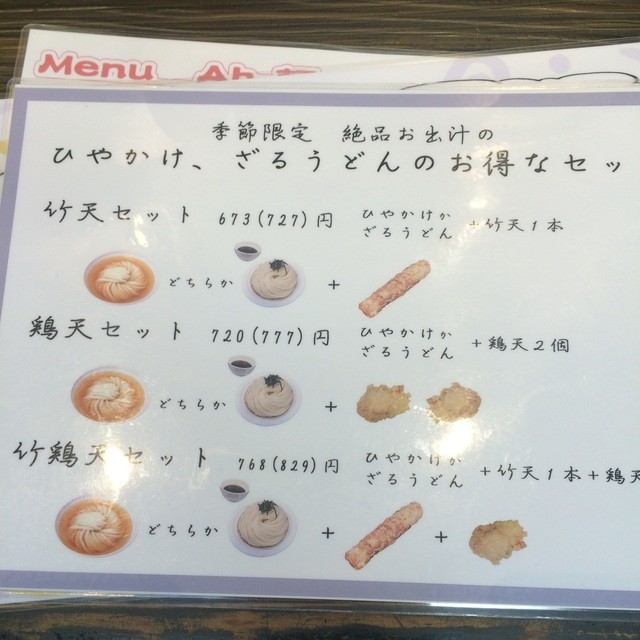 Menu
季節限定 絶品お出汁の
ひやかけ、ざるうどんのお得なセッ
竹天セット 673(727)円 ひやかけか
ざるうどん +竹天1本
どちらか +
鶏天セット 720(777)円 ひやかけか
ざるうどん +鶏天2個
どちらか +
竹鶏天セット 768(829)円 ひやかけか
ざるうどん +竹天1本+鶏天
どちらか + +